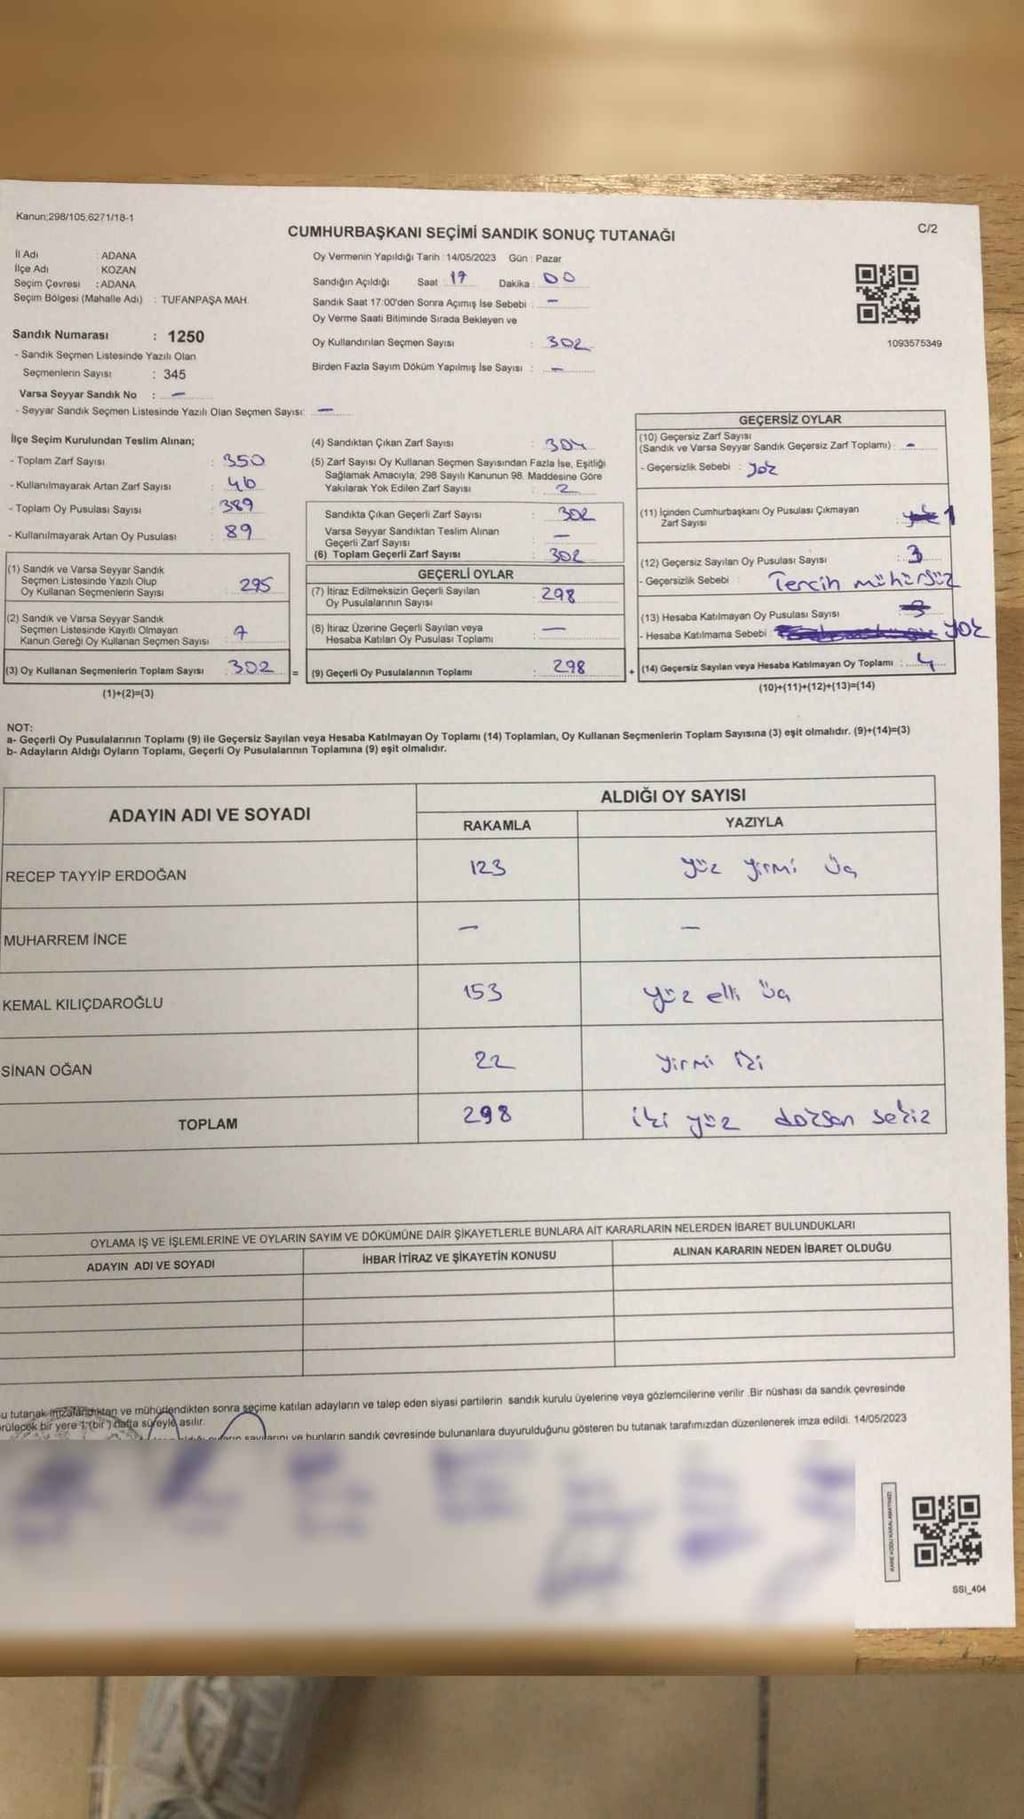 Kanun;298/105,6271/18-1
C/2
CUMHURBAŞKANI SEÇİMİ SANDIK SONUÇ TUTANAĞI
İl Adı : ADANA
İlçe Adı : KOZAN
Seçim Çevresi : ADANA
Seçim Bölgesi (Mahalle Adı) : TUFANPAŞA MAH.
Sandık Numarası : 1250
- Sandık Seçmen Listesinde Yazılı Olan
Seçmenlerin Sayısı : 345
Varsa Seyyar Sandık No : –
- Seyyar Sandık Seçmen Listesinde Yazılı Olan Seçmen Sayısı: –
Oy Vermenin Yapıldığı Tarih : 14/05/2023 Gün : Pazar
Sandığın Açıldığı Saat 17 Dakika : 00
Sandık Saat 17:00'den Sonra Açımış İse Sebebi : –
Oy Verme Saati Bitiminde Sırada Bekleyen ve
Oy Kullandırılan Seçmen Sayısı : 302
Birden Fazla Sayım Döküm Yapılmış İse Sayısı : –
1093575349
İlçe Seçim Kurulundan Teslim Alınan;
- Toplam Zarf Sayısı : 350
- Kullanılmayarak Artan Zarf Sayısı : 46
- Toplam Oy Pusulası Sayısı : 389
- Kullanılmayarak Artan Oy Pusulası : 89
(1) Sandık ve Varsa Seyyar Sandık
Seçmen Listesinde Yazılı Olup
Oy Kullanan Seçmenlerin Sayısı : 295
(2) Sandık ve Varsa Seyyar Sandık
Seçmen Listesinde Kayıtlı Olmayan
Kanun Gereği Oy Kullanan Seçmen Sayısı : 7
(3) Oy Kullanan Seçmenlerin Toplam Sayısı : 302 =
(1)+(2)=(3)
(4) Sandıktan Çıkan Zarf Sayısı : 304
(5) Zarf Sayısı Oy Kullanan Seçmen Sayısından Fazla İse, Eşitliği
Sağlamak Amacıyla; 298 Sayılı Kanunun 98. Maddesine Göre
Yakılarak Yok Edilen Zarf Sayısı : 2
Sandıkta Çıkan Geçerli Zarf Sayısı : 302
Varsa Seyyar Sandıktan Teslim Alınan
Geçerli Zarf Sayısı : –
(6) Toplam Geçerli Zarf Sayısı : 302
GEÇERLİ OYLAR
(7) İtiraz Edilmeksizin Geçerli Sayılan
Oy Pusulalarının Sayısı : 298
(8) İtiraz Üzerine Geçerli Sayılan veya
Hesaba Katılan Oy Pusulası Toplamı : –
(9) Geçerli Oy Pusulalarının Toplamı : 298 +
GEÇERSİZ OYLAR
(10) Geçersiz Zarf Sayısı
(Sandık ve Varsa Seyyar Sandık Geçersiz Zarf Toplamı) : –
- Geçersizlik Sebebi : yok
(11) İçinden Cumhurbaşkanı Oy Pusulası Çıkmayan
Zarf Sayısı : 1
(12) Geçersiz Sayılan Oy Pusulası Sayısı : 3
- Geçersizlik Sebebi : Tercih mühürsüz
(13) Hesaba Katılmayan Oy Pusulası Sayısı :
- Hesaba Katılmama Sebebi : yok
(14) Geçersiz Sayılan veya Hesaba Katılmayan Oy Toplamı : 4
(10)+(11)+(12)+(13)=(14)
NOT:
a- Geçerli Oy Pusulalarının Toplamı (9) ile Geçersiz Sayılan veya Hesaba Katılmayan Oy Toplamı (14) Toplamları, Oy Kullanan Seçmenlerin Toplam Sayısına (3) eşit olmalıdır. (9)+(14)=(3)
b- Adayların Aldığı Oyların Toplamı, Geçerli Oy Pusulalarının Toplamına (9) eşit olmalıdır.
ADAYIN ADI VE SOYADI ALDIĞI OY SAYISI
RAKAMLA YAZIYLA
RECEP TAYYİP ERDOĞAN 123 yüz yirmi üç
MUHARREM İNCE – –
KEMAL KILIÇDAROĞLU 153 yüz elli üç
SİNAN OĞAN 22 yirmi iki
TOPLAM 298 iki yüz doksan sekiz
OYLAMA İŞ VE İŞLEMLERİNE VE OYLARIN SAYIM VE DÖKÜMÜNE DAİR ŞİKAYETLERLE BUNLARA AİT KARARLARIN NELERDEN İBARET BULUNDUKLARI
ADAYIN ADI VE SOYADI İHBAR İTİRAZ VE ŞİKAYETİN KONUSU ALINAN KARARIN NEDEN İBARET OLDUĞU
u tutanak imzalandıktan ve mühürlendikten sonra seçime katılan adayların ve talep eden siyasi partilerin sandık kurulu üyelerine veya gözlemcilerine verilir .Bir nüshası da sandık çevresinde
rülecek bir yere 1 (bir ) hafta süreyle asılır.
ve bunların sandık çevresinde bulunanlara duyurulduğunu gösteren bu tutanak tarafımızdan düzenlenerek imza edildi. 14/05/2023
SSI_404